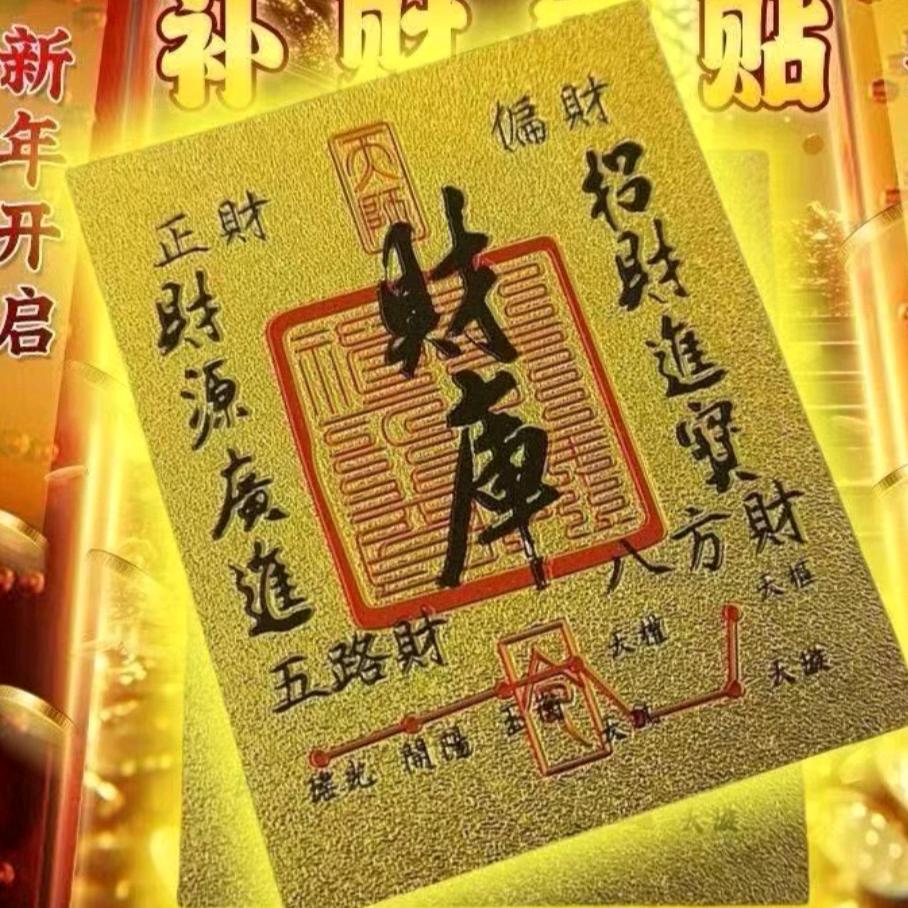 补财库贴
新年开启
天師
偏財
正財
財庫
招財進寶
財源廣進
八方財
五路財
天樞
天璇
天權
天璣
玉衡
開陽
瑤光